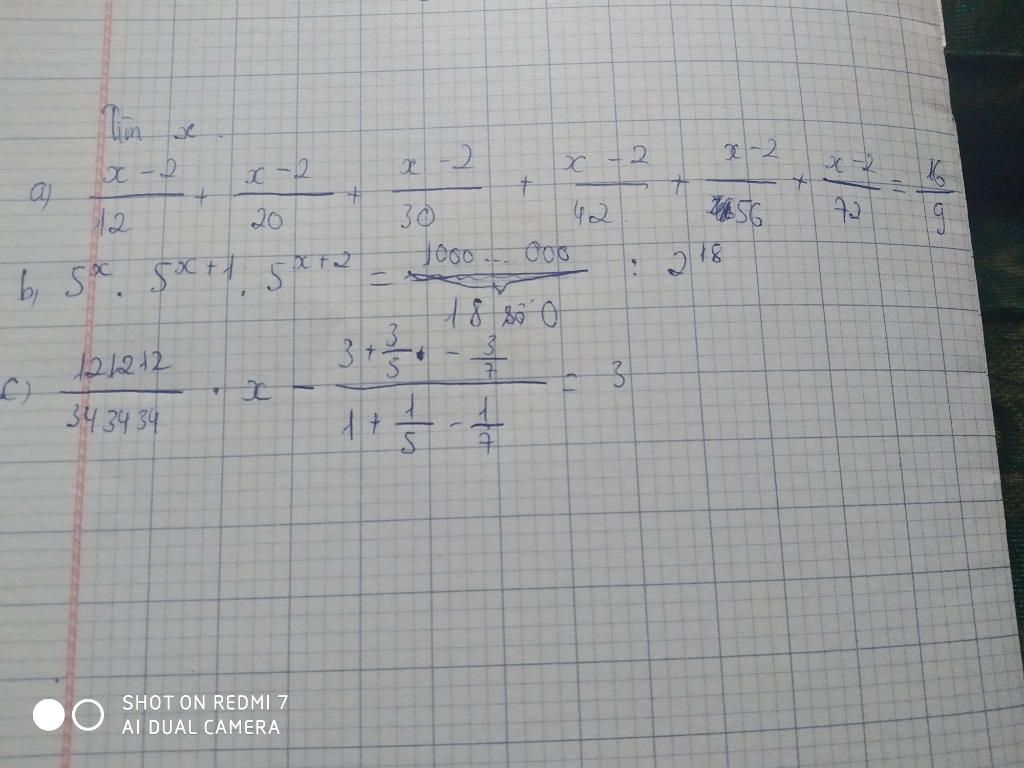 Tìm x.
a) (x - 2)/12 + (x - 2)/20 + (x - 2)/30 + (x - 2)/42 + (x - 2)/56 + (x - 2)/72 = 16/9
b, 5^x . 5^(x+1) . 5^(x+2) = 1000...000 : 2^18
18 số 0
c) 121212/343434 . x - (3 + 3/5 - 3/7)/(1 + 1/5 - 1/7) = 3
SHOT ON REDMI 7
AI DUAL CAMERA